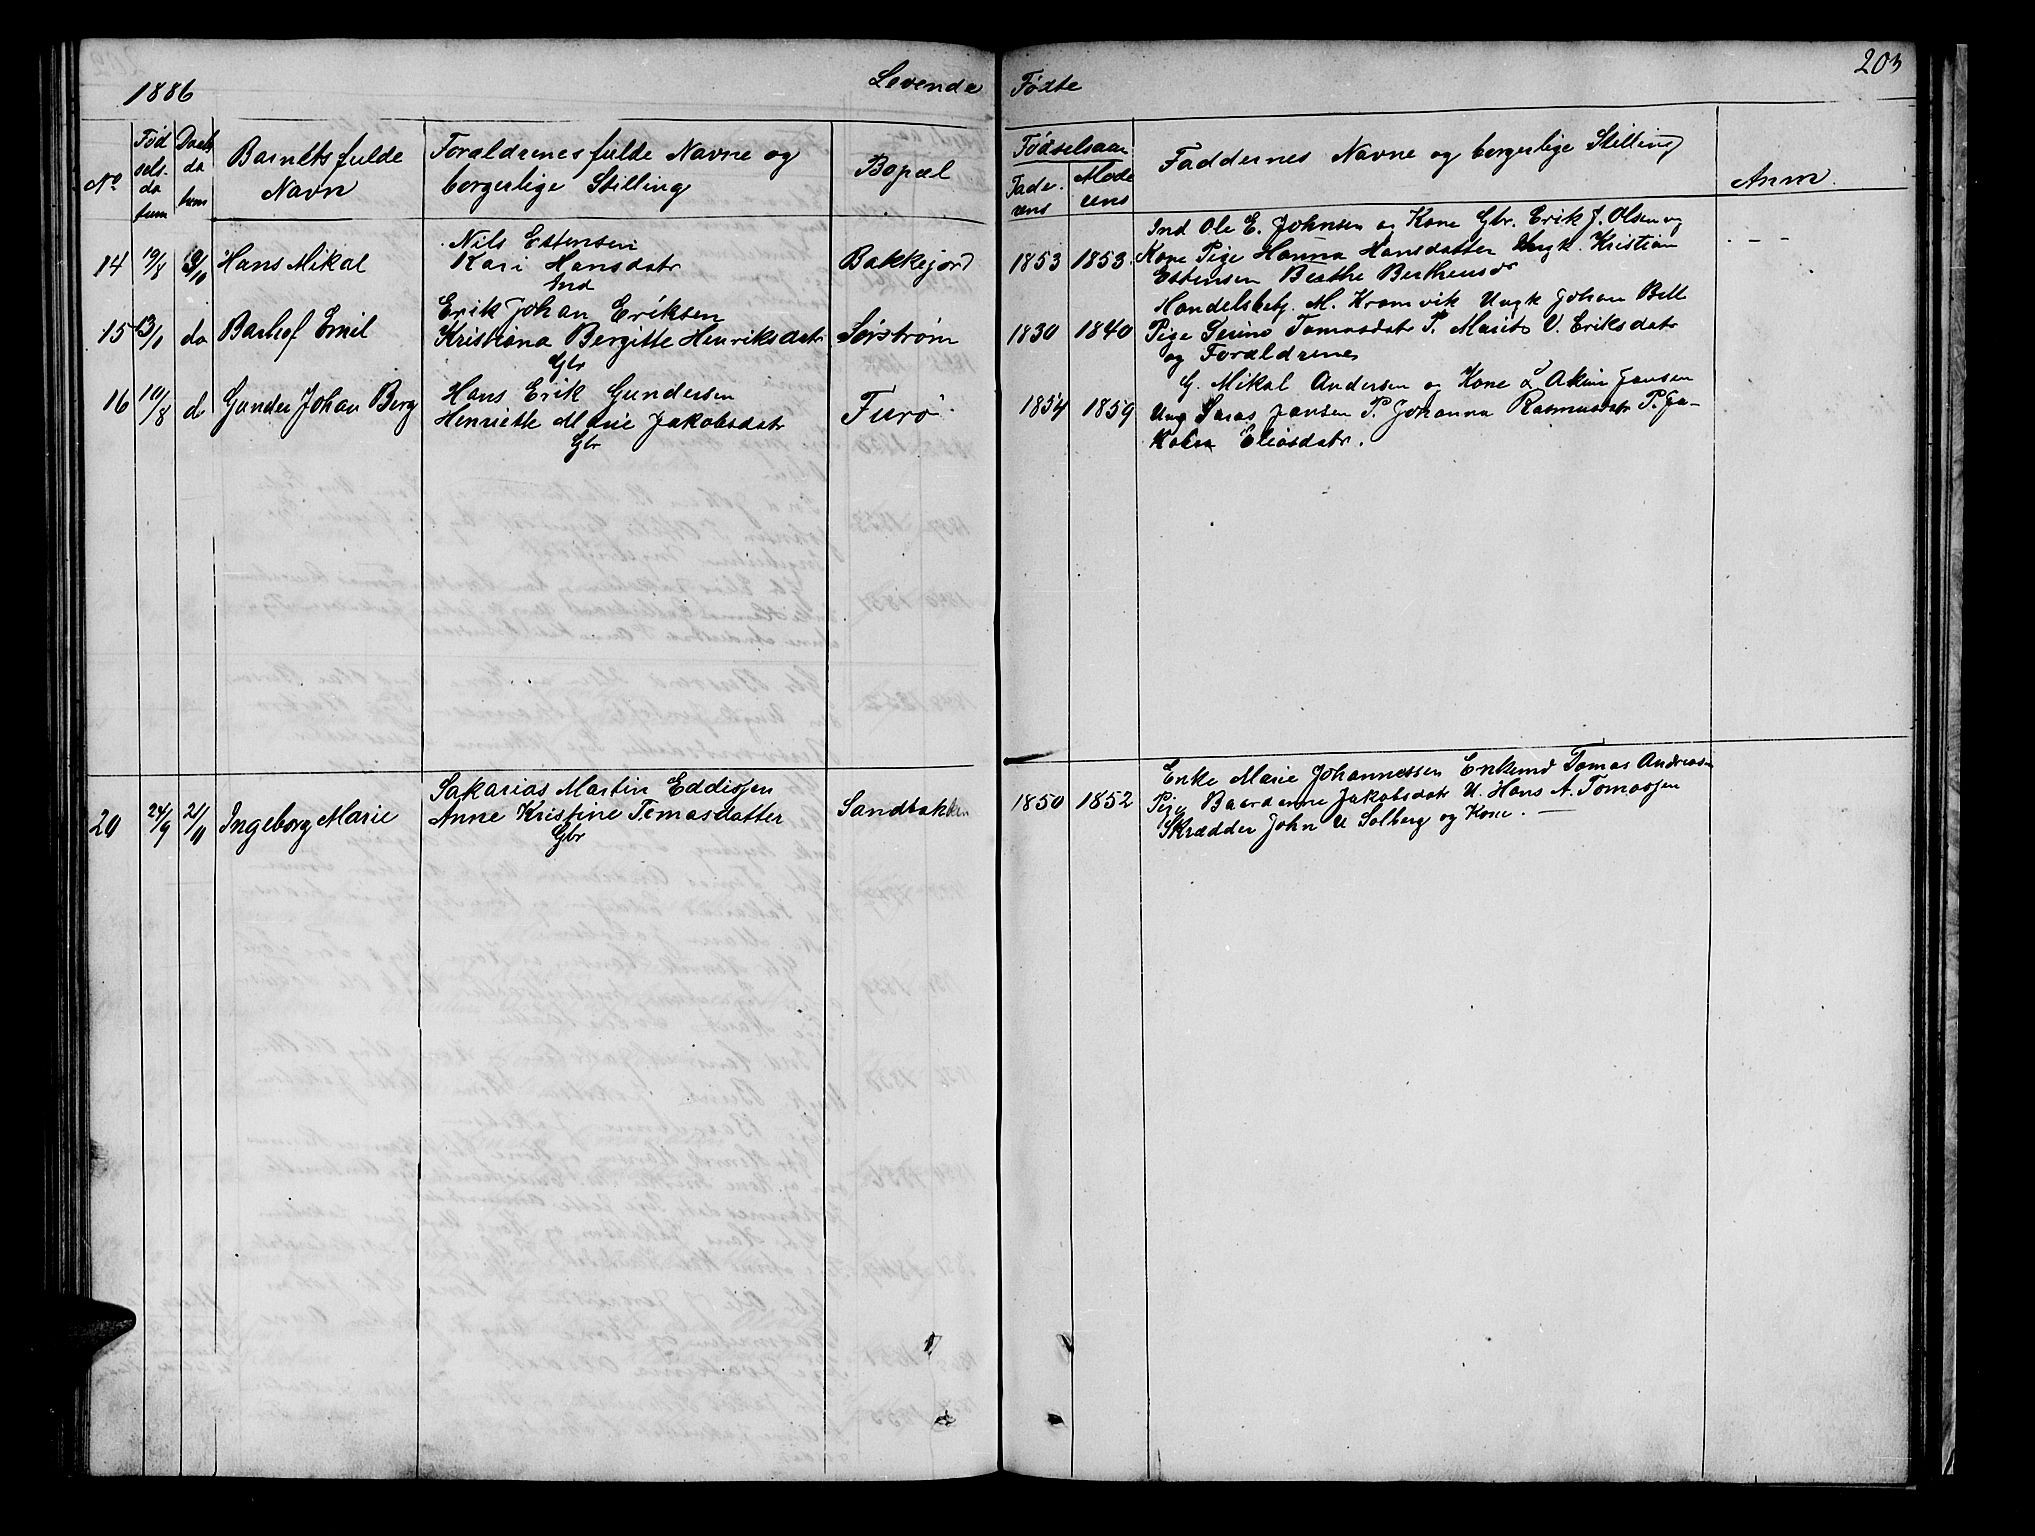 1886 Levende Fødte 203
No Fødselsdatum Daabsdatum Barnets fulde Navn Forældrenes fulde Navne og borgerlige Stilling Bopæl Fødselsaar Faderens Moderens Faddernes Navne og borgerlige Stilling Anm.
14 19/8 Hans Mikal Nils Estensen
Kari Hansdatr
Ind
Bakkejord 1853 1853
Ind Ole E. Johnsen og Kone Gbr. Erik J. Olsen og
Kone Pige Hanna Hansdatter Ungk. Kristian
Estensen Berthe
- - -
15 do Emil
Erik Johan Eriksen
Kristiana Bergitte Henriksdatr
Gbr
Sørstrøm 1830 1840
Handelsbetj. M. Kramvik Ungk Johan Bell
Pige Tomasdatr P. Marit V. Eriksdatr
og Forældrene
16 19/8 d Gunder Johan Berg
Hans Erik Gundersen
Henriette Marie Jakobsdatr
Gbr
Furø 1854 1859
G. Mikal Andersen og Kone Jansen
Ung Jansen P. Johanna Rasmusdatr P. Ja-
kobea Eliasdatr.
20 24/9 21/11 Ingeborg Marie
Sakarias Martin Eddisjen
Anne Kristine Tomasdatter
Gbr
Sandbakken 1850 1852
Enke Marie Johannessen Enkemd Tomas Andreasn
Pige Baardanne Jakobsdatr U. Hans A. Tomasjen
Skrædder John U Solberg og Kone. —